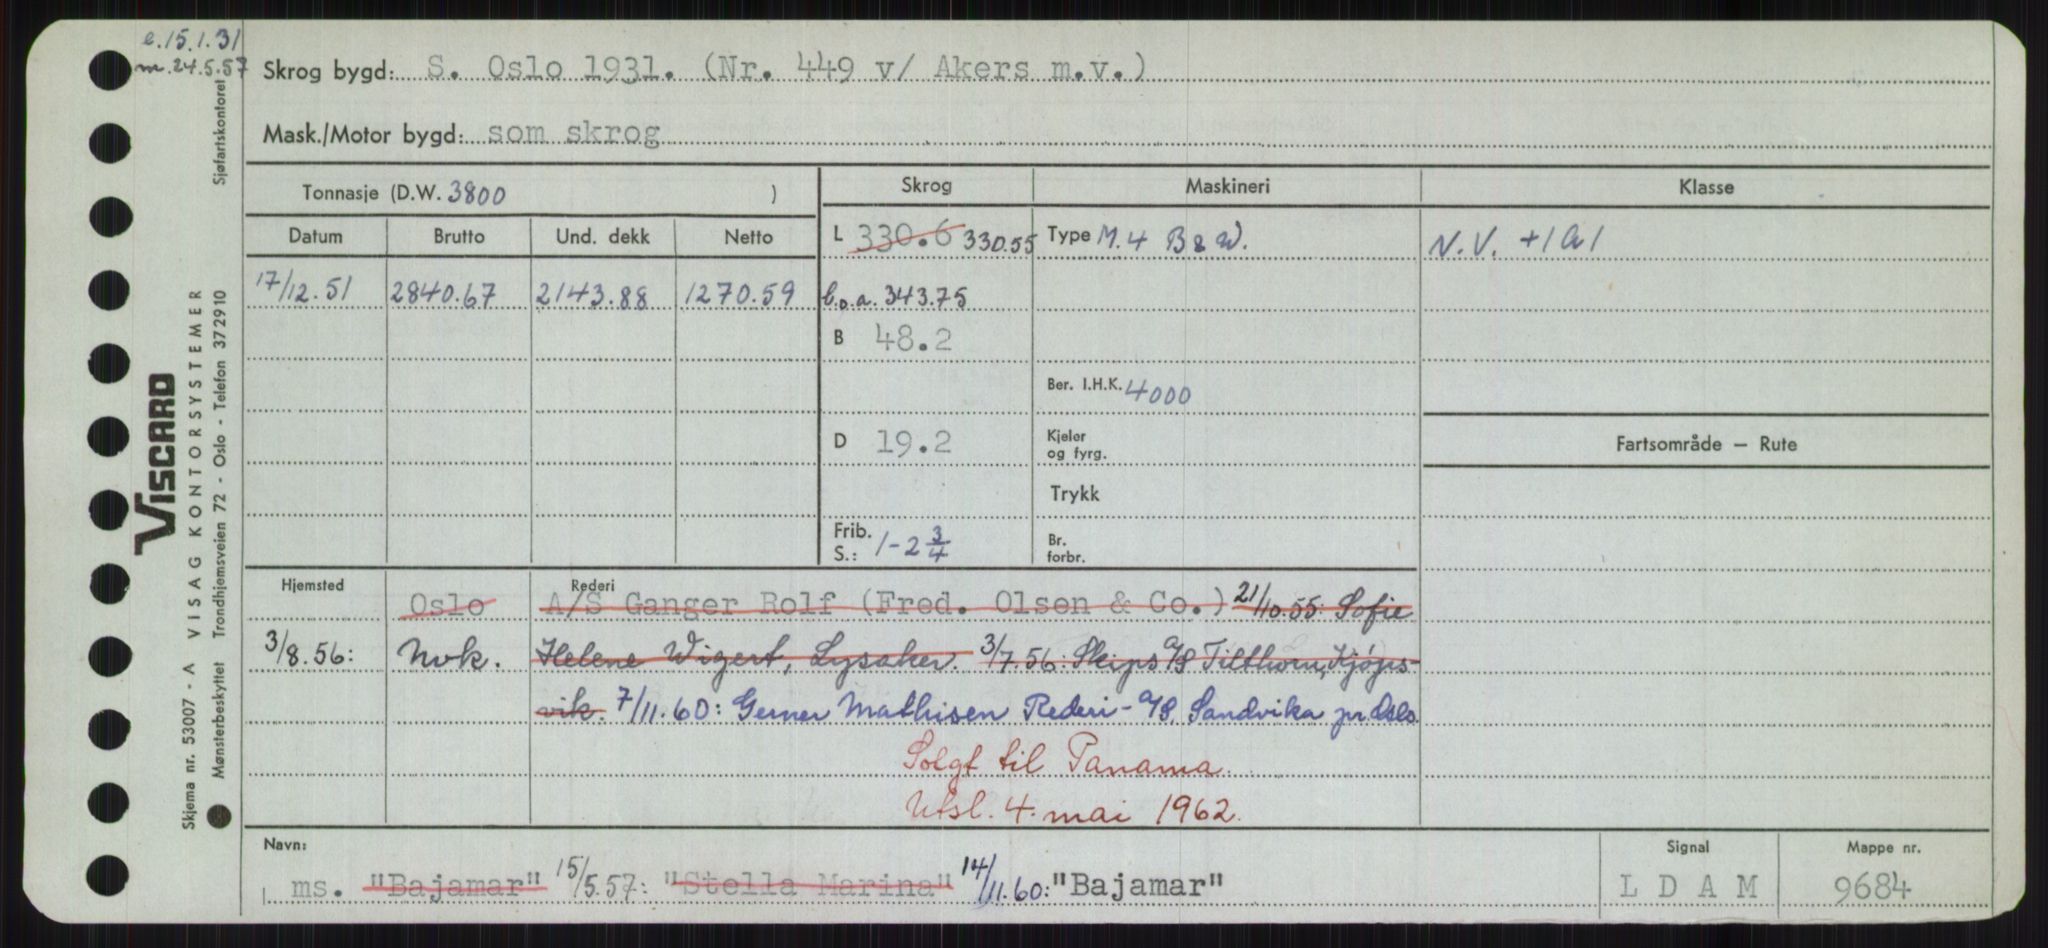 e.15.1.31
m.24.5.57
Skrog bygd: S. Oslo 1931. (Nr. 449 v/ Akers m.v.)
Mask./Motor bygd: som skrog
Tonnasje (D.W. 3800 )
Skrog Maskineri Klasse
Datum Brutto Und. dekk Netto
L 330.6 330.55 Type M. 4 B & W. N.V. +1A1
17/12.51 2840.67 2143.88 1270.59 l.o.a. 343.75
B 48.2
Ber. I.H.K. 4000
D 19.2 Kjeler og fyrg.
Fartsområde — Rute
Trykk
Frib. S.: 1-2 3/4 Br. forbr.
Hjemsted Oslo Rederi A/S Ganger Rolf (Fred. Olsen & Co.) 21/10.55: Sofie
3/8.56: Nvk. Helene Wigert, Lysaker. 3/7.56: Skips A/S Tilthorn, Kjøps-
vik. 7/11.60: Gerner Mathisen Rederi-A/S, Sandvika pr. Oslo.
Solgt til Panama.
Utsl. 4. mai 1962.
Navn: Signal Mappe nr.
ms. "Bajamar" 15/5.57: "Stella Marina" 14/11.60: "Bajamar" L D A M 9684
VISCARD
Skjema nr. 53007 - A VISAG KONTORSYSTEMER
Mønsterbeskyttet Trondhjemsveien 72 - Oslo - Telefon 372910 Sjøfartskontoret